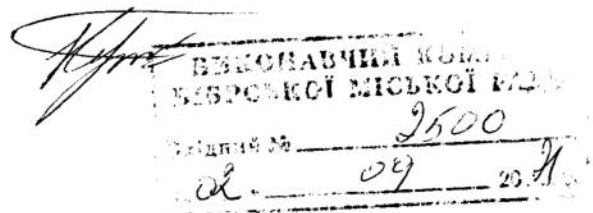 ВИКОНАВЧИЙ
БІБРСЬКОЇ МІСЬКОЇ РАДИ
Вхідний № 2500
02 . 09 20 21